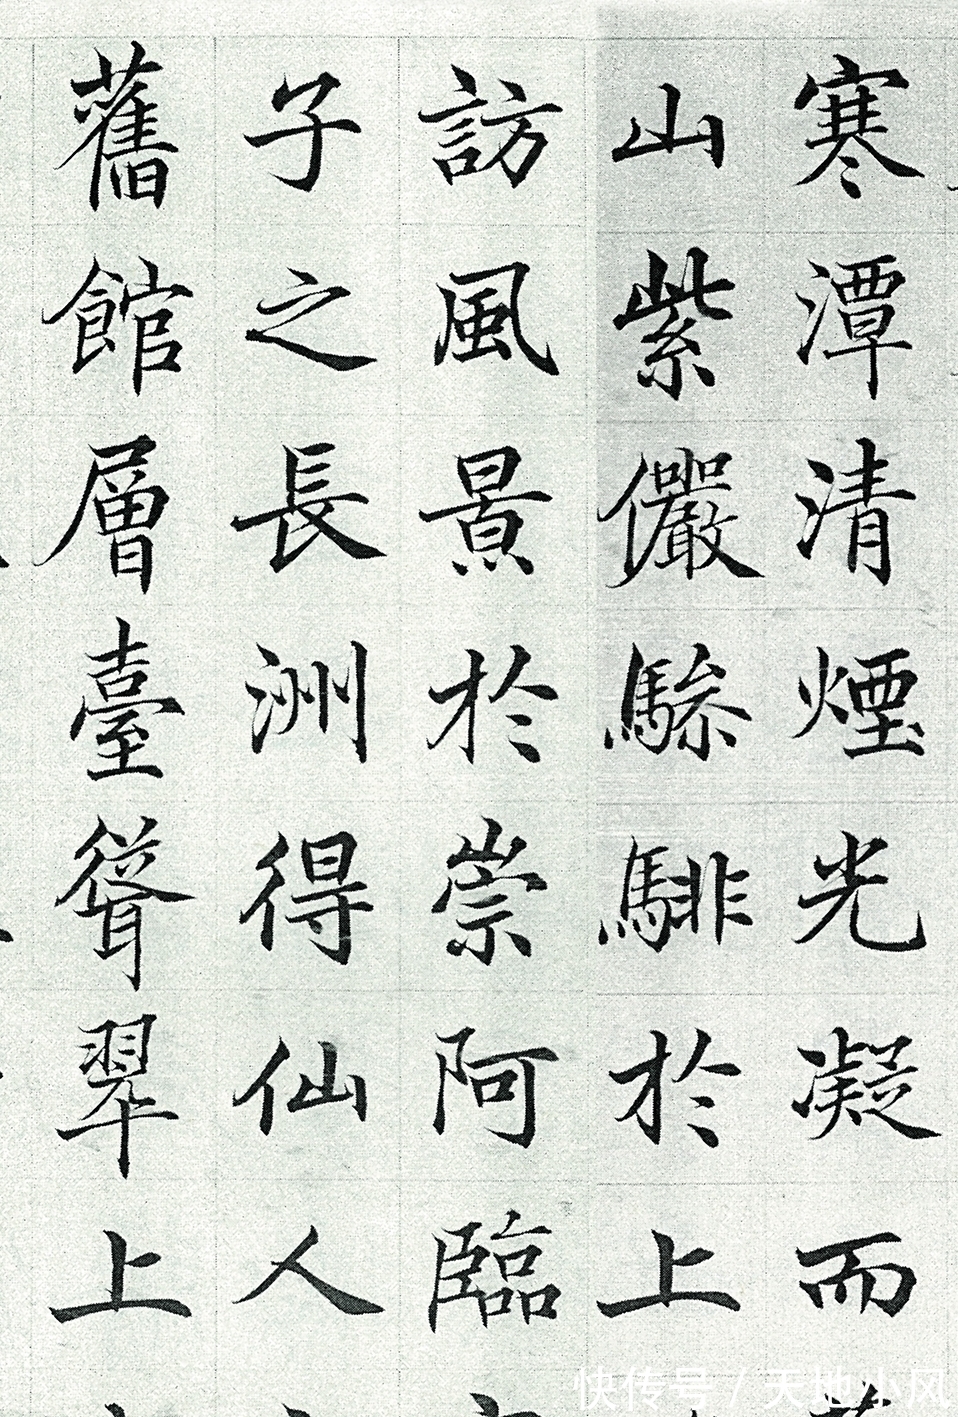 寒潭清煙光凝而
山紫儼驂騑於上
訪風景於崇阿臨
子之長洲得仙人
舊館層臺聳翠上
快传号 / 天地小风